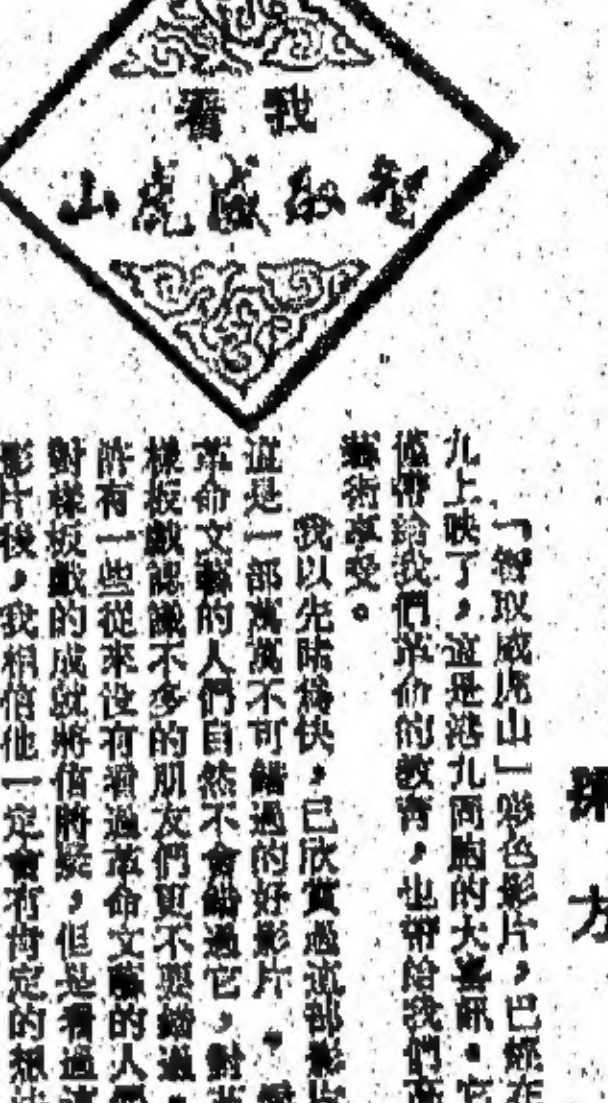 我看
智取威虎山
方
「智取威虎山」彩色影片，已經在
九上映了，這是港九同胞的大喜訊。它
僅帶給我們革命的教育，也帶給我們
藝術享受。
我以先睹為快，已欣賞過這部影片
這是一部萬萬不可錯過的好影片。
革命文藝的人們自然不會錯過它，對
樣板戲認識不多的朋友們更不要錯過
許有一些從來沒有看過革命文藝的人
對樣板戲的成就將信將疑，但是看過這
影片後，我相信他一定會有肯定的想法